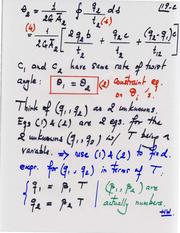 119-2
θ₂ = 1/(2GA₂) ∮ q₂ ds / t
(4) (4)
= 1/(2GA₂) [ 2q₂b/t₂ + q₂c/t₂ + (q₂-q₁)c/t₁₂ ]
C₁ and C₂ have same rate of twist
angle: θ₁ = θ₂ (2) constraint eq.
on θᵢ's.
Think of (q₁, q₂) as 2 unknowns.
Eqs (1) & (2) are 2 eqs. for the
2 unknowns (q₁, q₂) w/ T being a
variable. → use (1) & (2) to find
expr. for (q₁, q₂) in terms of T.
{ q₁ = β₁ T
q₂ = β₂ T
(β₁, β₂) are
actually numbers.
HW